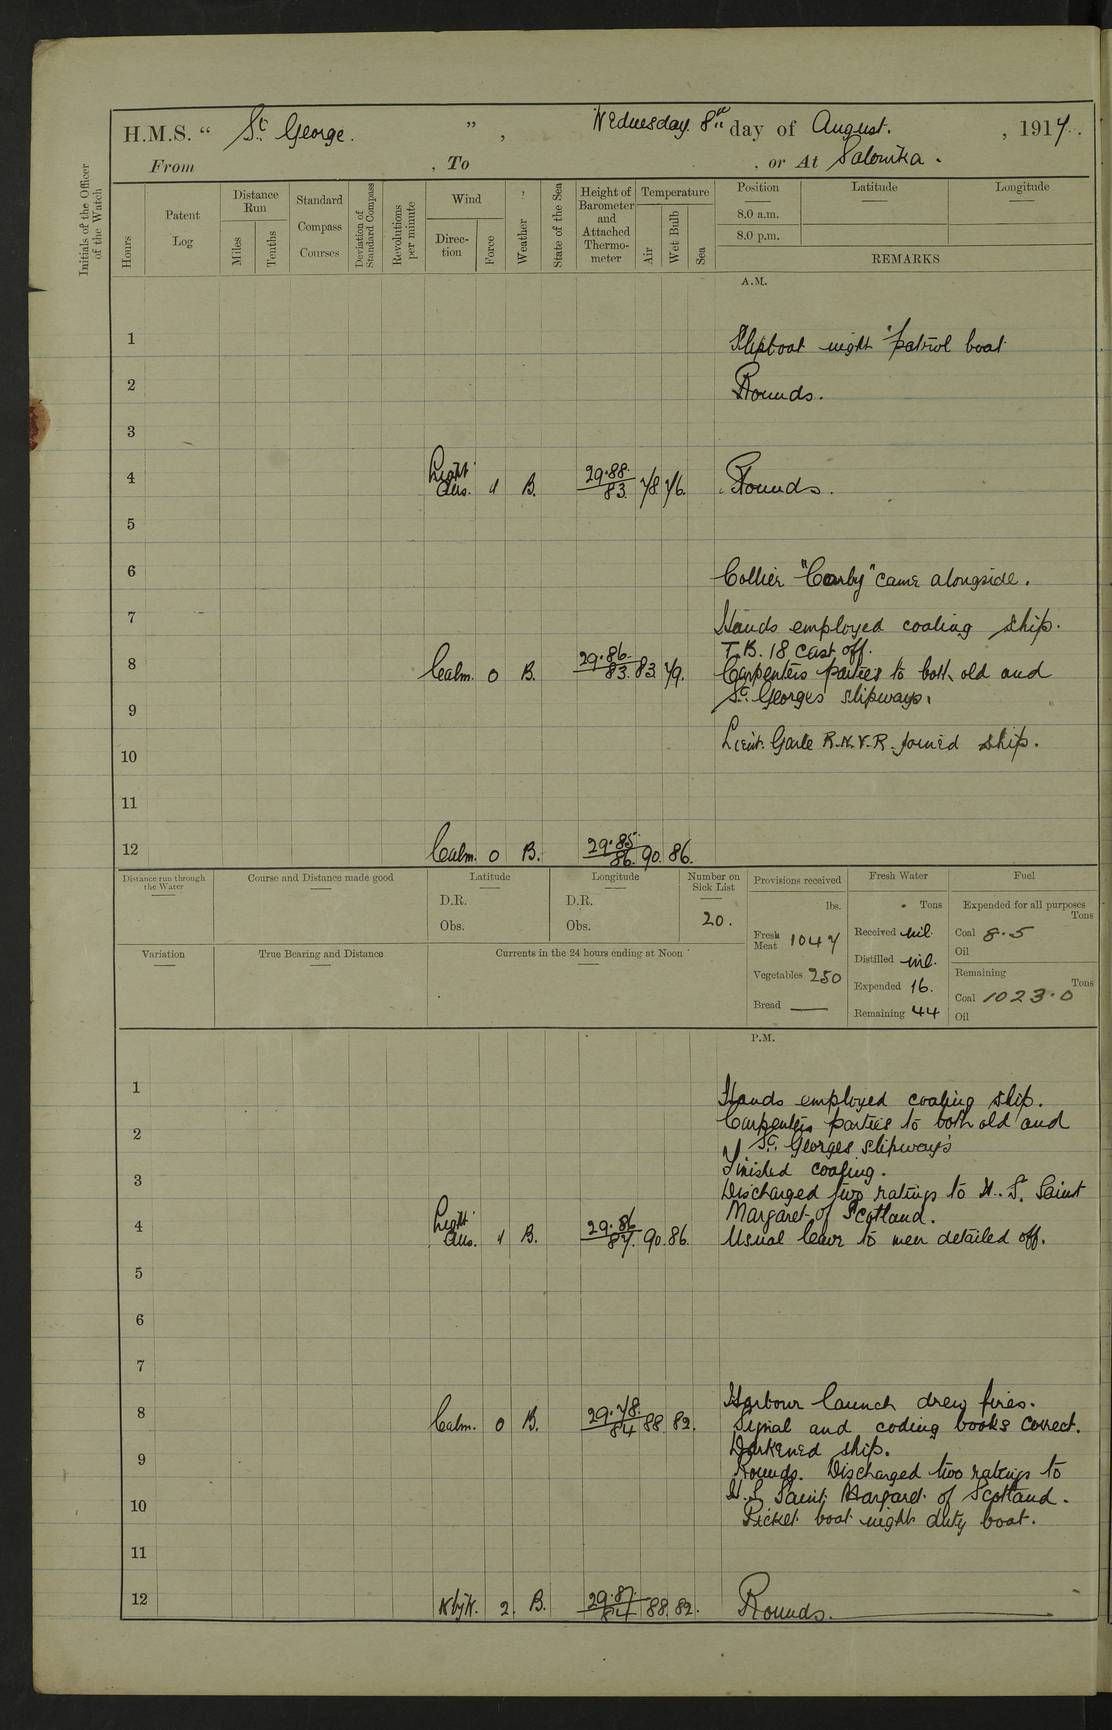 H.M.S. “ St. George. ” , Wednesday. 8th day of August. , 1917.
From , To , or At Salonika.
Initials of the Officer of the Watch
Hours
Patent Log
Distance Run
Miles
Tenths
Standard Compass Courses
Deviation of Standard Compass
Revolutions per minute
Wind
Direction
Force
Weather
State of the Sea
Height of Barometer and Attached Thermometer
Temperature
Air
Wet Bulb
Sea
Position Latitude Longitude
8.0 a.m.
8.0 p.m.
REMARKS
A.M.
1 night patrol boat
2 Rounds.
3
4 Light Airs. 1 B. 29.88. 83. 78 76. Rounds.
5
6 Collier "Comby" came alongside.
7 Hands employed coaling ship.
T.B. 18 cast off.
8 Calm. 0 B. 29.86. 83. 83. 79. Carpenters parties to both old and
St. Georges slipways.
9
Lieut. Garle R.N.V.R. joined ship.
10
11
12 Calm. 0 B. 29.85. 86. 90. 86.
Distance run through the Water
Course and Distance made good
Latitude
D.R.
Obs.
Longitude
D.R.
Obs.
Number on Sick List
20.
Provisions received
lbs.
Fresh Meat 1047
Vegetables 250
Bread —
Fresh Water
Tons
Received nil.
Distilled nil.
Expended 16.
Remaining 44
Fuel
Expended for all purposes
Tons
Coal 8.5
Oil
Remaining
Tons
Coal 1023.0
Oil
Variation
True Bearing and Distance
Currents in the 24 hours ending at Noon
P.M.
1 Hands employed coaling ship.
Carpenters parties to both old and
2 St. Georges slipways
Finished coaling.
3 Discharged two ratings to H.S. Saint
Margaret of Scotland.
4 Light Airs. 1 B. 29.86 87. 90. 86. Usual leave to men detailed off.
5
6
7
Harbour launch drew fires.
8 Calm. 0 B. 29.78. 84 88. 82. Signal and coding books correct.
Darkened ship.
9 Rounds. Discharged two ratings to
H.S. Saint Margaret of Scotland.
10 Picket boat night duty boat.
11
12 2. B. 29.87. 84 88. 82. Rounds.